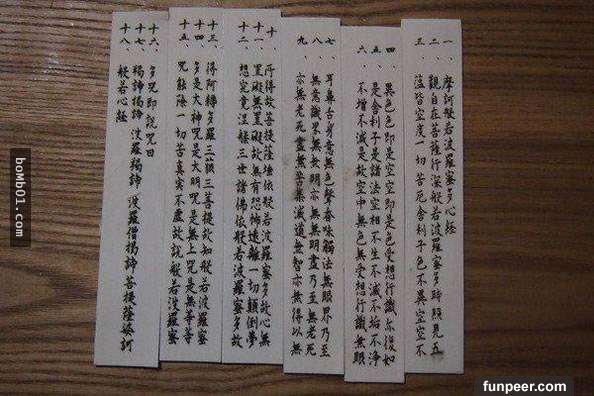 一、摩訶般若波羅蜜多心經
二、觀自在菩薩行深般若波羅蜜多時照見五
三、蘊皆空度一切苦厄舍利子色不異空空不
四、異色色即是空空即是色受想行識亦復如
五、是舍利子是諸法空相不生不滅不垢不淨
六、不增不減是故空中無色無受想行識無眼
耳鼻舌身意無色聲香味觸法無眼界乃至
八、無意識界無無明亦無無明盡乃至無老死
九、亦無老死盡無苦集滅道無智亦無得以無
十、所得故菩提薩埵依般若波羅蜜多故心無
十一、罣礙無罣礙故無有恐怖遠離一切顛倒夢
十二、想究竟涅槃三世諸佛依般若波羅蜜多故
十三、得阿耨多羅三藐三菩提故知般若波羅蜜
十四、多是大神咒是大明咒是無上咒是無等等
十五、咒能除一切苦真實不虛故說般若波羅蜜
十六、多咒即說咒曰
十七、揭諦揭諦 波羅揭諦 波羅僧揭諦菩提薩婆訶
十八、般若心經
boMb01.com
funpeer.com